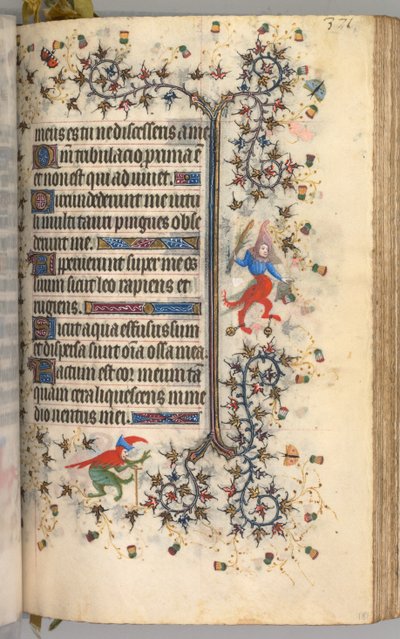 376
meus es tu ne discesseris a me
Qm̄ tribulacio proxima ē
et non est qui adiuuet.
Circūdederunt me uitu
li multi tauri pingues obse
derunt me.
Aperuerunt super me os
suum sicut leo rapiens et
rugiens.
Sicut aqua effusus sum
et dispersa sunt oīa ossa mea.
Factum est cor meum tā
quam cera liquescens in me
dio uentris mei.